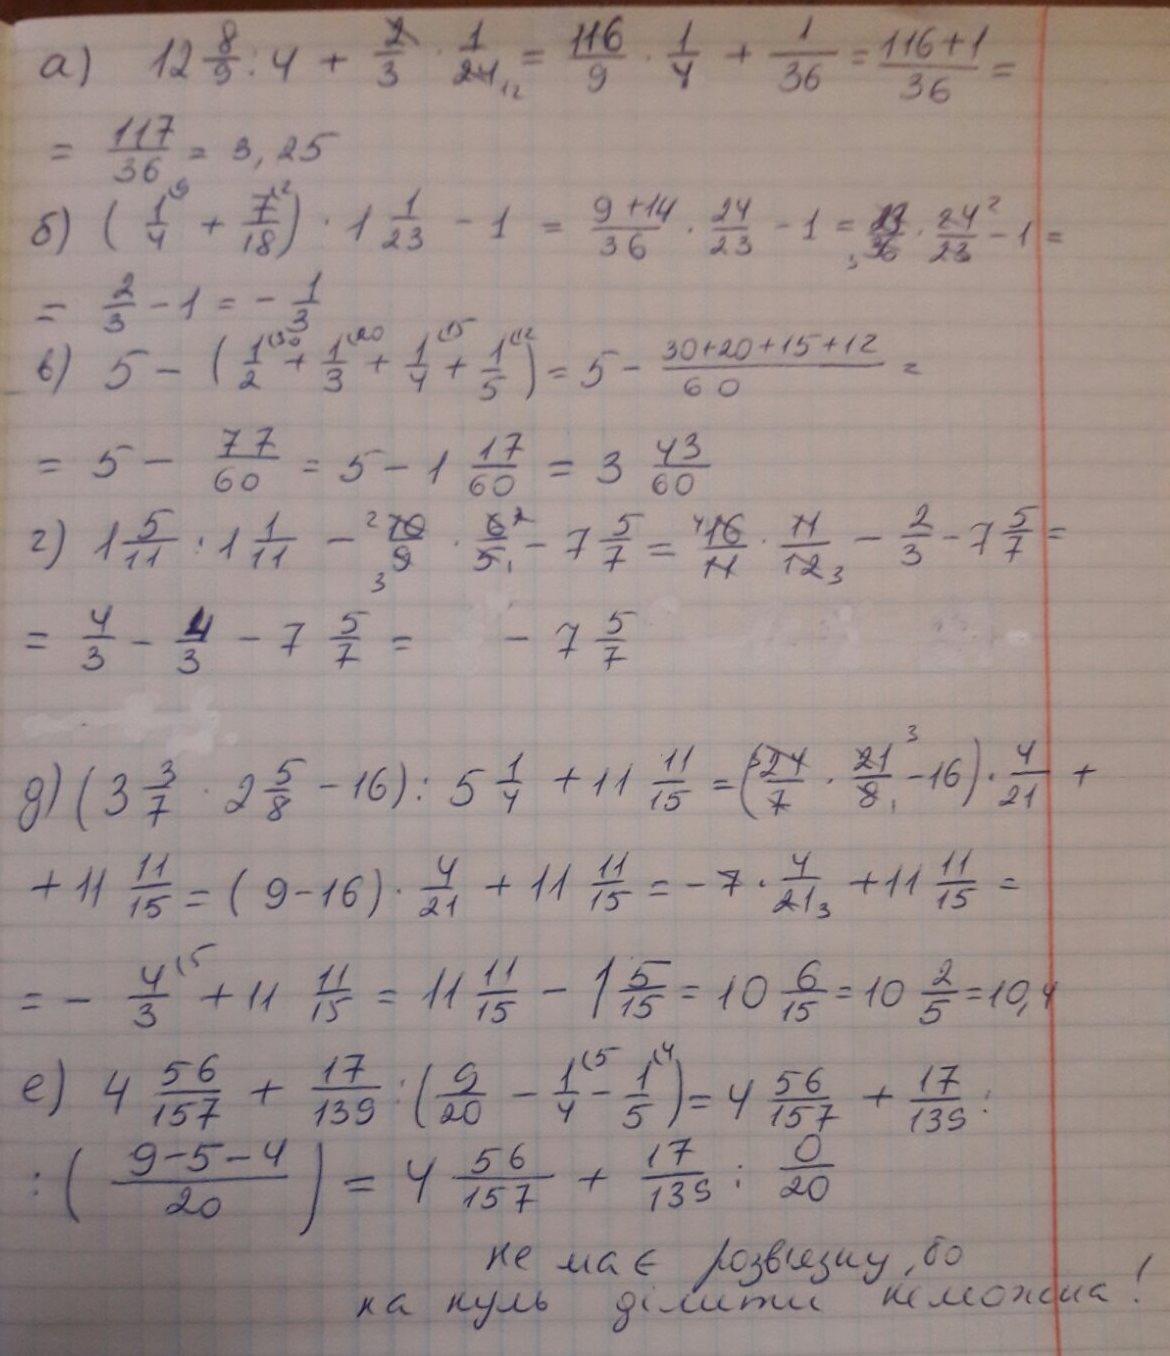 а) 12 8/9 : 4 + 2/3 · 1/24 12 = 116/9 · 1/4 + 1/36 = 116+1/36 =
= 117/36 = 3,25
б) ( 1/4 (9 + 7/18 (2 ) · 1 1/23 - 1 = 9+14/36 · 24/23 - 1 = 23/36 3 · 24/23 2 - 1 =
= 2/3 - 1 = - 1/3
в) 5 - ( 1/2 (30 + 1/3 (20 + 1/4 (15 + 1/5 (12 ) = 5 - 30+20+15+12/60 =
= 5 - 77/60 = 5 - 1 17/60 = 3 43/60
г) 1 5/11 : 1 1/11 - 2 10/9 3 · 6/5 2 1 - 7 5/7 = 4 16/11 · 11/12 3 - 2/3 - 7 5/7 =
= 4/3 - 4/3 - 7 5/7 = - 7 5/7
д) ( 3 3/7 · 2 5/8 - 16 ) : 5 1/4 + 11 11/15 = ( 3 24/7 · 21/8 3 1 - 16 ) · 4/21 +
+ 11 11/15 = ( 9 - 16 ) · 4/21 + 11 11/15 = - 7 · 4/21 3 + 11 11/15 =
= - 4/3 (5 + 11 11/15 = 11 11/15 - 1 5/15 = 10 6/15 = 10 2/5 = 10,4
е) 4 56/157 + 17/139 : ( 9/20 - 1/4 (5 - 1/5 (4 ) = 4 56/157 + 17/139 :
: ( 9-5-4/20 ) = 4 56/157 + 17/139 : 0/20
не має розв'язку, бо
на нуль ділити неможна!